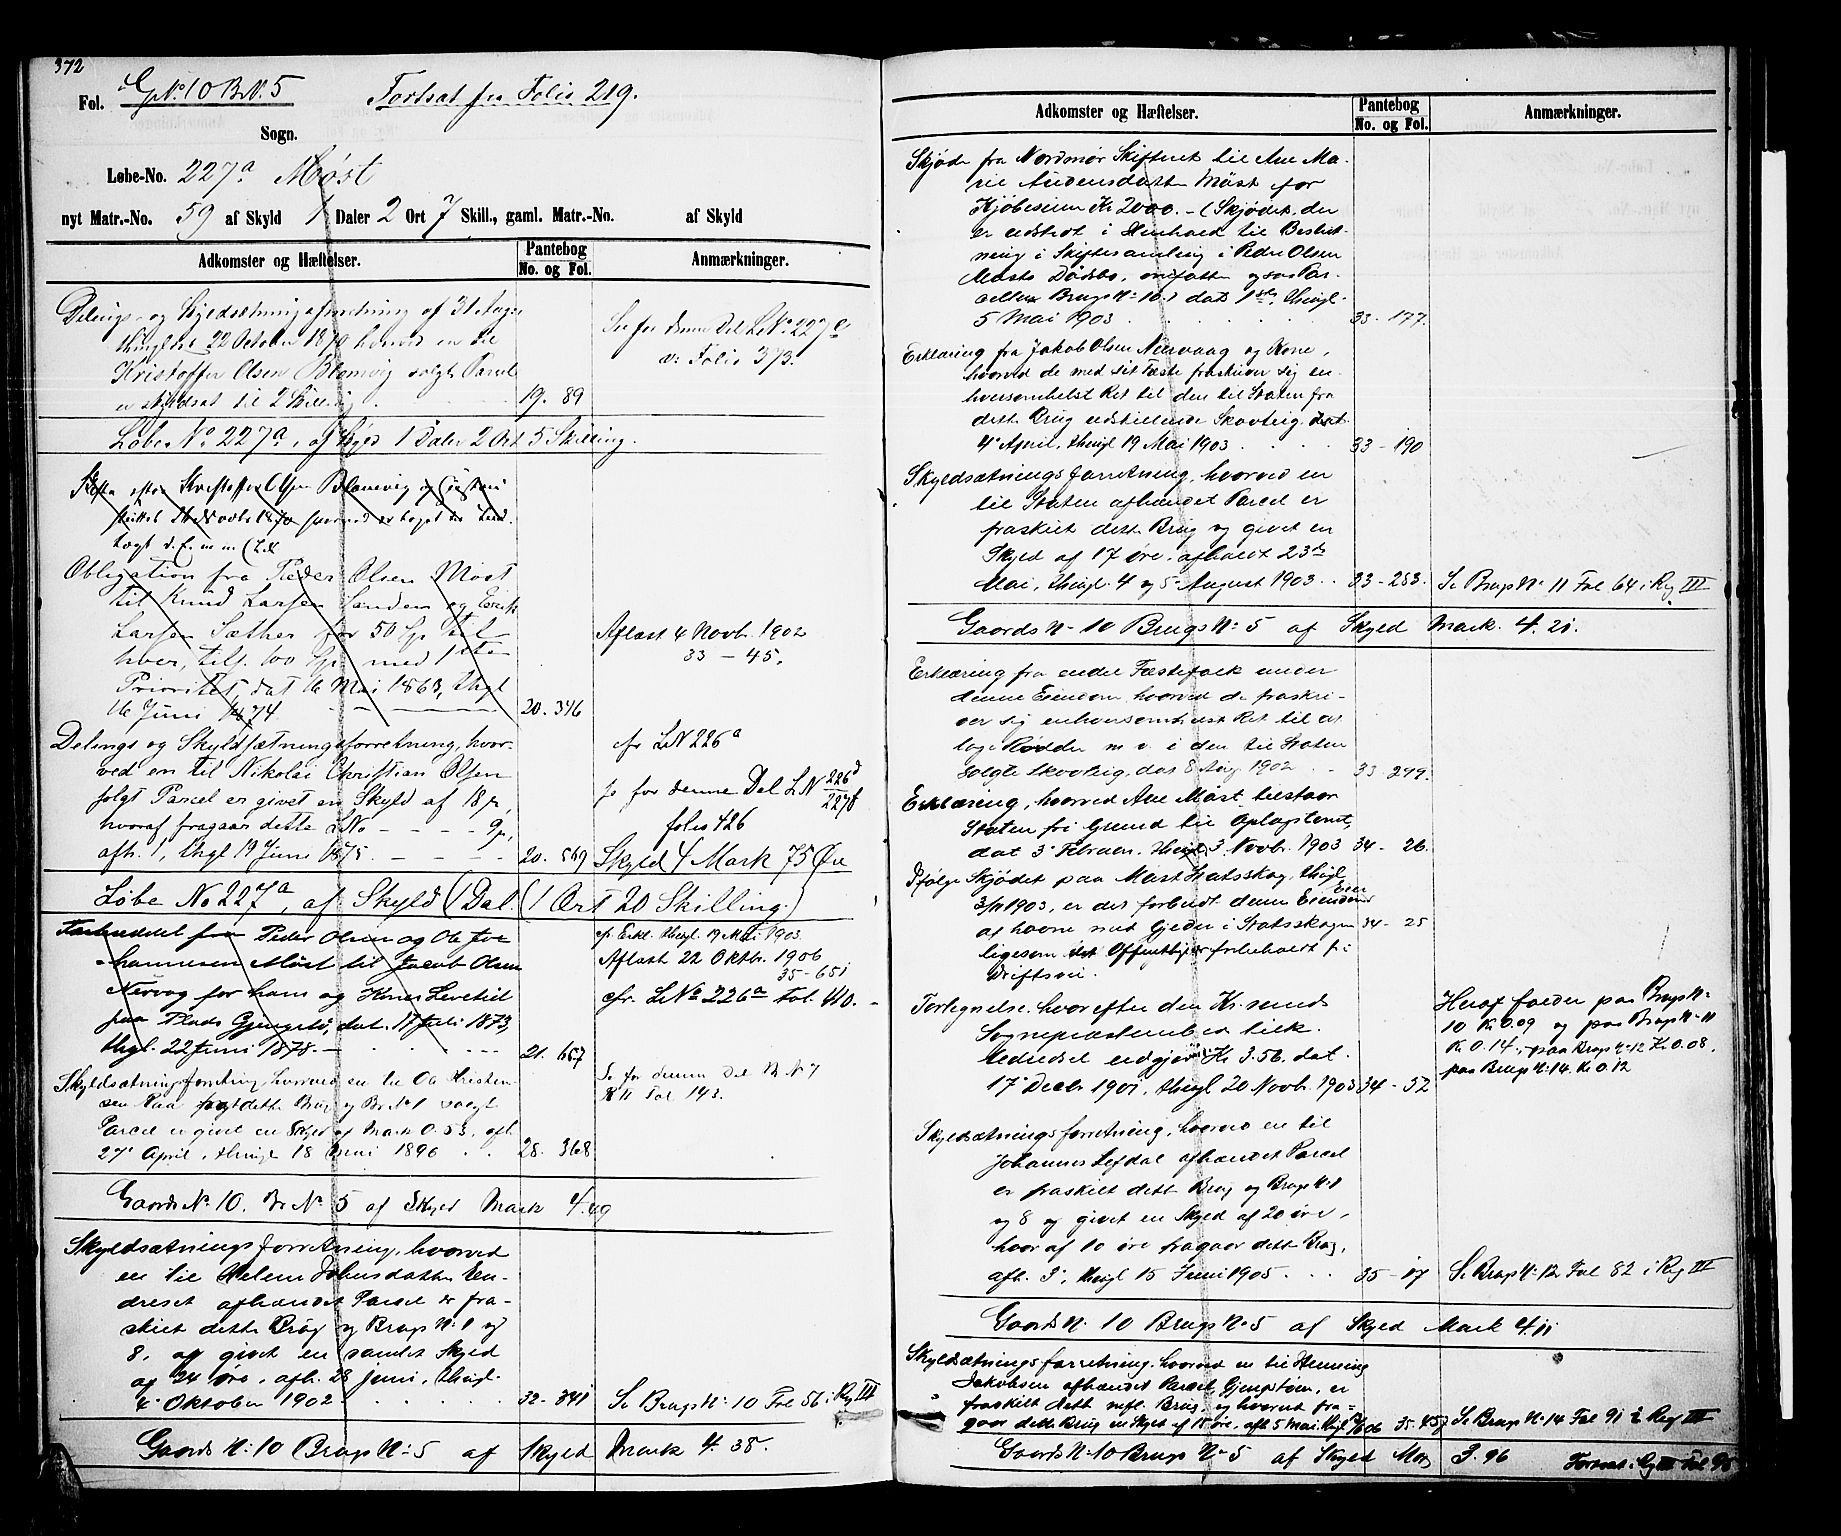 372
Fol. GNo. 10 BrN. 5 Fortsat fra Folio 219.
Sogn.
Løbe-No. 227a Møst
nyt Matr.-No. 59 af Skyld 1 Daler 2 Ort 7 Skill., gaml. Matr.-No. af Skyld
Adkomster og Hæftelser. Pantebog No. og Fol. Anmærkninger.
Delings- og Skyldsætningsforretning af 31 Aug.
thinglæst 22 October 1870 hvorved en til
Kristoffer Olsen Blomvig solgt Parcel
er skyldsat til 2 Skilling 19. 89
Se for denne Del L.No. 227e
v: Folio 373.
Løbe No. 227a, af Skyld 1 Daler 2 Ort 5 Skilling.
Skifte efter Kristoffer Olsen Blomvig og
sluttet Novbr 1870 hvorved er taget
Obligation fra Peder Olsen Møst
til Knud Larsen Sanden og Erik
Larsen Sæther for 50 Sp. til
hver, tils. 100 Sp. med 1ste
Prioritet, dat 16 Mai 1863, thgl
16 Juni 1874 20. 346
Aflæst 4 Novb. 1902
33 – 45.
Delings og Skyldsætningsforretning, hvor-
ved en til Nikolai Christian Olsen
solgt Parcel er givet en Skyld af 18 p,
hvoraf fragaar dette LNo – – – 9p,
afh. 1, thgl 19 Juni 1875. – – – 20. 569
cfr LN 226a
se for denne Del LN 226d
227f
folio 426
Skyld 4 Mark 75 Øre
Løbe No 227a, af Skyld (1 Dal. (1 Ort 20 Skilling.)
Fæsteseddel fra Peder Olsen og Ole Jo-
hannesen Møst til Jacob Olsen
Nervog for ham og Kones Levetid
paa Plads Gjengstø, dat. 17 Juli 1873,
thgl. 22 Juni 1878. – 21. 667
cfr. Erkl. thingl. 19 Mai 1903.
Aflæst 22 Oktbr. 1906
35–651
cfr. L.No 226a Fol. 410. –
Skyldsætningsforretning, hvorved en til Ole Kristen-
sen Paa fra dette Brug og Br.No 1 solgt
Parcel er givet en Skyld af Mark 0.53, afh.
27 April, thingl 18 Juni 1896 28. 368
Se for denne Del Br. No 7
R II Fol 143.
Gaards No. 10. Br No 5 af Skyld Mark 4.49
Skyldsætningsforretning, hvorved
en til Helene Johnsdatter En-
dreset afhændet Parcel er fra-
skilt dette Brug og Brugs No 1 og
8, og givet en samlet Skyld
af 24 øre, afh. 28 juni, thingl.
4 Oktober 1902 32–341
Se Brugs No 10 Fol 56 i Reg III
Gaards No 10 Brugs No 5 af Skyld Mark 4.38.
Adkomster og Hæftelser. Pantebog No. og Fol. Anmærkninger.
Skjøde fra Nordmør Skifteret til Ane Ma-
rie Audensdatter Møst for
Kjøbesum Kr 2000. – (Skjødet, der
er udstedt i Henhold til Beslut-
ning i Skiftesamling i Peder Olsen
Møsts Dødsbo, omfatter ogsaa Par-
cellen Brugs No 10) dat 1ste, thingl.
5 Mai 1903 33–177.
Erklæring fra Jakob Olsen Nervaag og Kone,
hvorved de med sit Fæste fraskriver sig en-
hversomhelst Ret til den til Staten fra
dette Brug udskillende Skovteig, dat.
4 April, thingl 19 Mai 1903 33–190
Skyldsætningsforretning, hvorved en
til Staten afhændet Parcel er
fraskilt dette Brug og givet en
Skyld af 17 øre, afholdt 23de
Mai, thingl. 4 og 5 August 1903 33–253.
Se Brugs No 11 Fol 64 i Reg III
Gaards No 10 Brugs No 5 af Skyld Mark. 4.21.
Erklæring fra endel Fæstefolk under
denne Eiendom, hvorved de fraskri-
ver sig enhversomhelst Ret til at
tage Rødder m. v. i den til Staten
solgte Skovteig, dat 8 Aug. 1902 33–299.
Erklæring, hvorved Ane Møst tilstaar
Staten fri Grund til Oplagstomt,
dat 3 Februar, thingl. 3 Novb. 1903 34–26.
Ifølge Skjødet paa Møst Statsskog, thingl
3/11 1903, er det forbudt denne Eiendoms Eier
at havne med Gjeder i Statsskogen 34–25
ligesom det Offentlige er forbeholdt fri
Driftsvei.
Fortegnelse hvorefter den Kr.sunds
Sognepræstembede tillk.
udgjør Kr 3.56. dat.
17 Decbr 1901, thingl 20 Novb. 1903 34–52
Heraf falder paa Brugs No
10 Kr 0.09 og paa Brugs No 11
Kr 0.14, paa Brugs No 12 Kr 0.08,
paa Brugs No 14. Kr 0.12
Skyldsætningsforretning, hvorved en til
Johannes Lefdal afhændet Parcel
er fraskilt dette Brug og Brugs No 1
og 8 og givet en Skyld af 20 øre,
hvoraf 10 øre fragaar dette Brug,
afh. 3, thingl 15 Juni 1905 35–17
Se Brugs No 12 Fol 82 i Reg III
Gaards No 10 Brugs No 5 af Skyld Mark 4.11
Skyldsætningsforretning, hvorved en til Henning
Jakobsen afhændet Parcel, Gjengstøen, er
fraskilt dette Brug og hvorved fra-
gaar dette Brug en Skyld af 15 øre, afh 5 Mai, 1906 35–453
Se Brugs No 14 Fol 91 i Reg III
Gaards No 10 Brugs No 5 af Skyld Mark 3.96 Fortsat i Reg III Fol 95